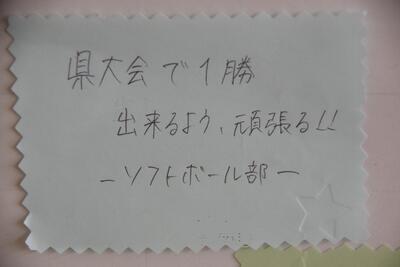 県大会で1勝
出来るよう、頑張る!!
－ソフトボール部－